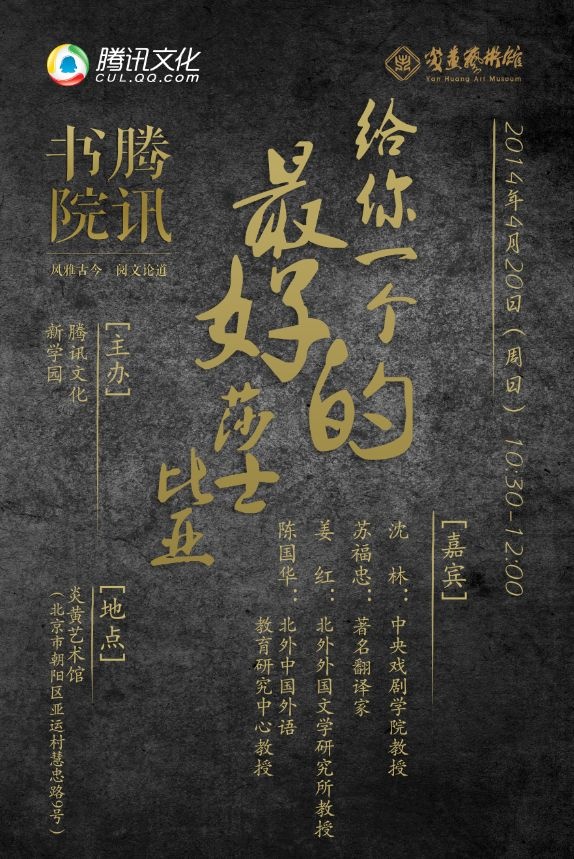 腾讯文化
CUL.QQ.COM
炎黄艺术馆
Yan Huang Art Museum
2014年4月20日（周日）10:30-12:00
给你一个
最好的
莎士
比亚
腾讯
书院
风雅古今 阅文论道
[嘉宾]
沈林：中央戏剧学院教授
苏福忠：著名翻译家
姜红：北外外国文学研究所教授
陈国华：北外中国外语
教育研究中心教授
[主办]
腾讯文化
新学园
[地点]
炎黄艺术馆
（北京市朝阳区亚运村慧忠路9号）